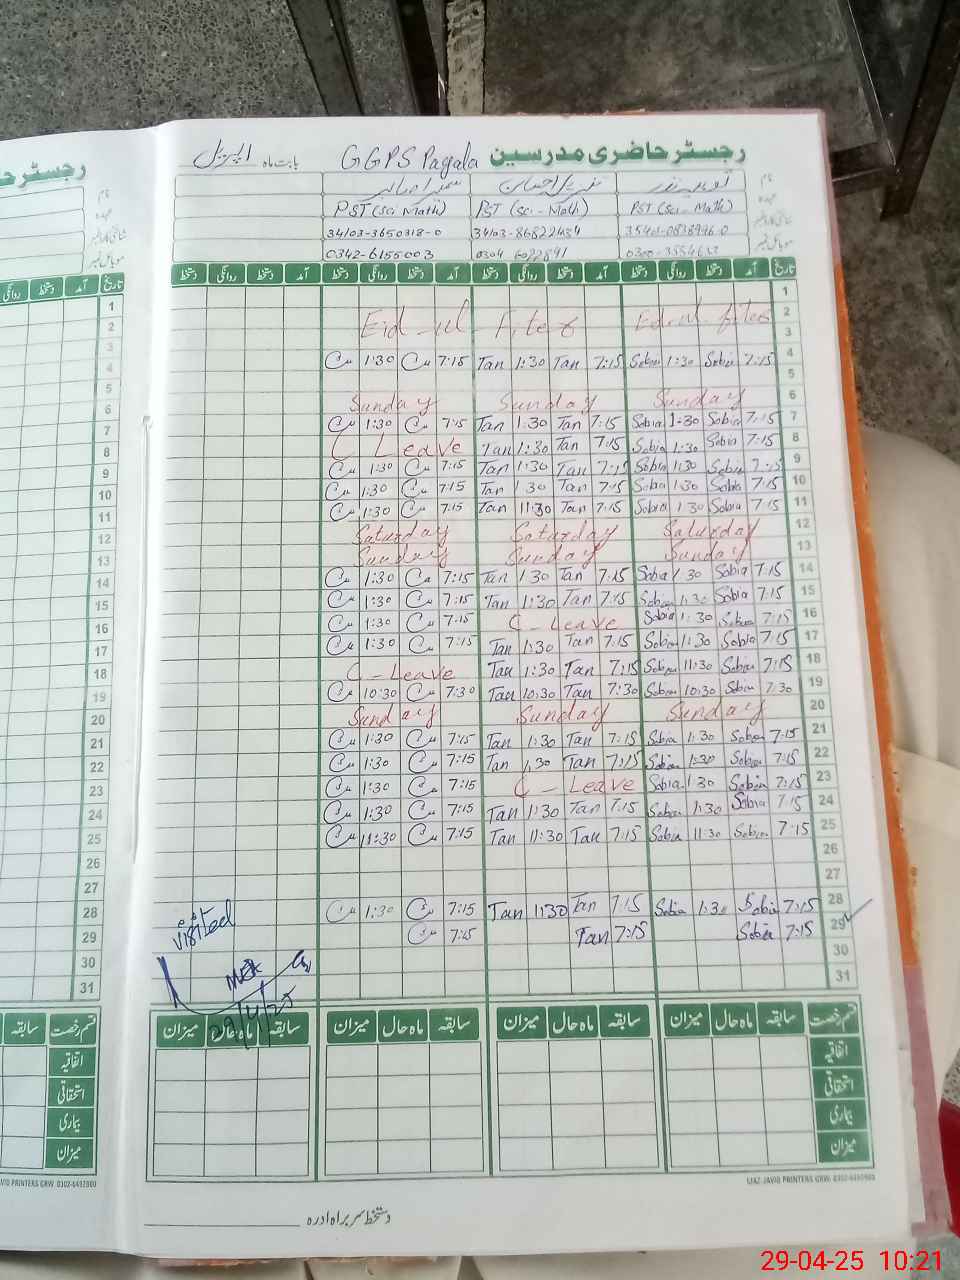 رجسٹر حاضری مدرسین GGPS Pagala بابت ماہ اپریل
نام
عہدہ PST (Sci - Math) PST (Sci - Math) PST (Sci Math)
شناختی کارڈ نمبر 34103-3650318-0
موبائل نمبر 0342-6155003
تاریخ آمد دستخط روانگی دستخط آمد دستخط روانگی دستخط آمد دستخط روانگی دستخط آمد دستخط روانگی دستخط
1
2 Eid-ul-Fiter Ed-ul-fiter
3
4 1:30 7:15 Tan 1:30 Tan 7:15 Sobia 1:30 Sobia 7:15
5
6 Sunday Sunday Sunday
7 1:30 7:15 Tan 1:30 Tan 7:15 Sobia 1:30 Sobia 7:15
8 C Leave Tan 1:30 Tan 7:15 Sobia 1:30 Sobia 7:15
9 1:30 7:15 Tan 1:30 Tan 7:15 Sobia 1:30 Sobia 7:15
10 1:30 7:15 Tan 1:30 Tan 7:15 Sobia 1:30 Sobia 7:15
11 1:30 7:15 Tan 11:30 Tan 7:15 Sobia 1:30 Sobia 7:15
12 Saturday Saturday Saturday
13 Sunday Sunday Sunday
14 1:30 7:15 Tan 1:30 Tan 7:15 Sobia 1:30 Sobia 7:15
15 1:30 7:15 Tan 1:30 Tan 7:15 Sobia 1:30 Sobia 7:15
16 1:30 7:15 C - Leave Sobia 1:30 Sobia 7:15
17 1:30 7:15 Tan 1:30 Tan 7:15 Sobia 1:30 Sobia 7:15
18 C - Leave Tan 1:30 Tan 7:15 Sobia 11:30 Sobia 7:15
19 10:30 7:30 Tan 10:30 Tan 7:30 Sobia 10:30 Sobia 7:30
20 Sunday Sunday Sunday
21 1:30 7:15 Tan 1:30 Tan 7:15 Sobia 1:30 Sobia 7:15
22 1:30 7:15 Tan 1:30 Tan 7:15 Sobia 1:30 Sobia 7:15
23 1:30 7:15 C - Leave Sobia 1:30 Sobia 7:15
24 1:30 7:15 Tan 1:30 Tan 7:15 Sobia 1:30 Sobia 7:15
25 11:30 7:15 Tan 11:30 Tan 7:15 Sobia 11:30 Sobia 7:15
26
27
28 1:30 7:15 Tan 1:30 Tan 7:15 Sobia 1:30 Sobia 7:15
29 7:15 Tan 7:15 Sobia 7:15
30
31
visited
29/4/25
قسم رخصت سابقہ ماہ حال میزان سابقہ ماہ حال میزان سابقہ ماہ حال میزان سابقہ ماہ حال میزان
اتفاقیہ
استحقاقی
بیماری
میزان
IJAZ JAVID PRINTERS GRW. 0302-6492900
دستخط سربراہ ادارہ
رجسٹر حا
نام
عہدہ
شناختی کارڈ نمبر
موبائل نمبر
تاریخ آمد دستخط روانگی
1
2
3
4
5
6
7
8
9
10
11
12
13
14
15
16
17
18
19
20
21
22
23
24
25
26
27
28
29
30
31
قسم رخصت سابقہ
اتفاقیہ
استحقاقی
بیماری
میزان
JAVID PRINTERS GRW. 0302-6492900
29-04-25 10:21